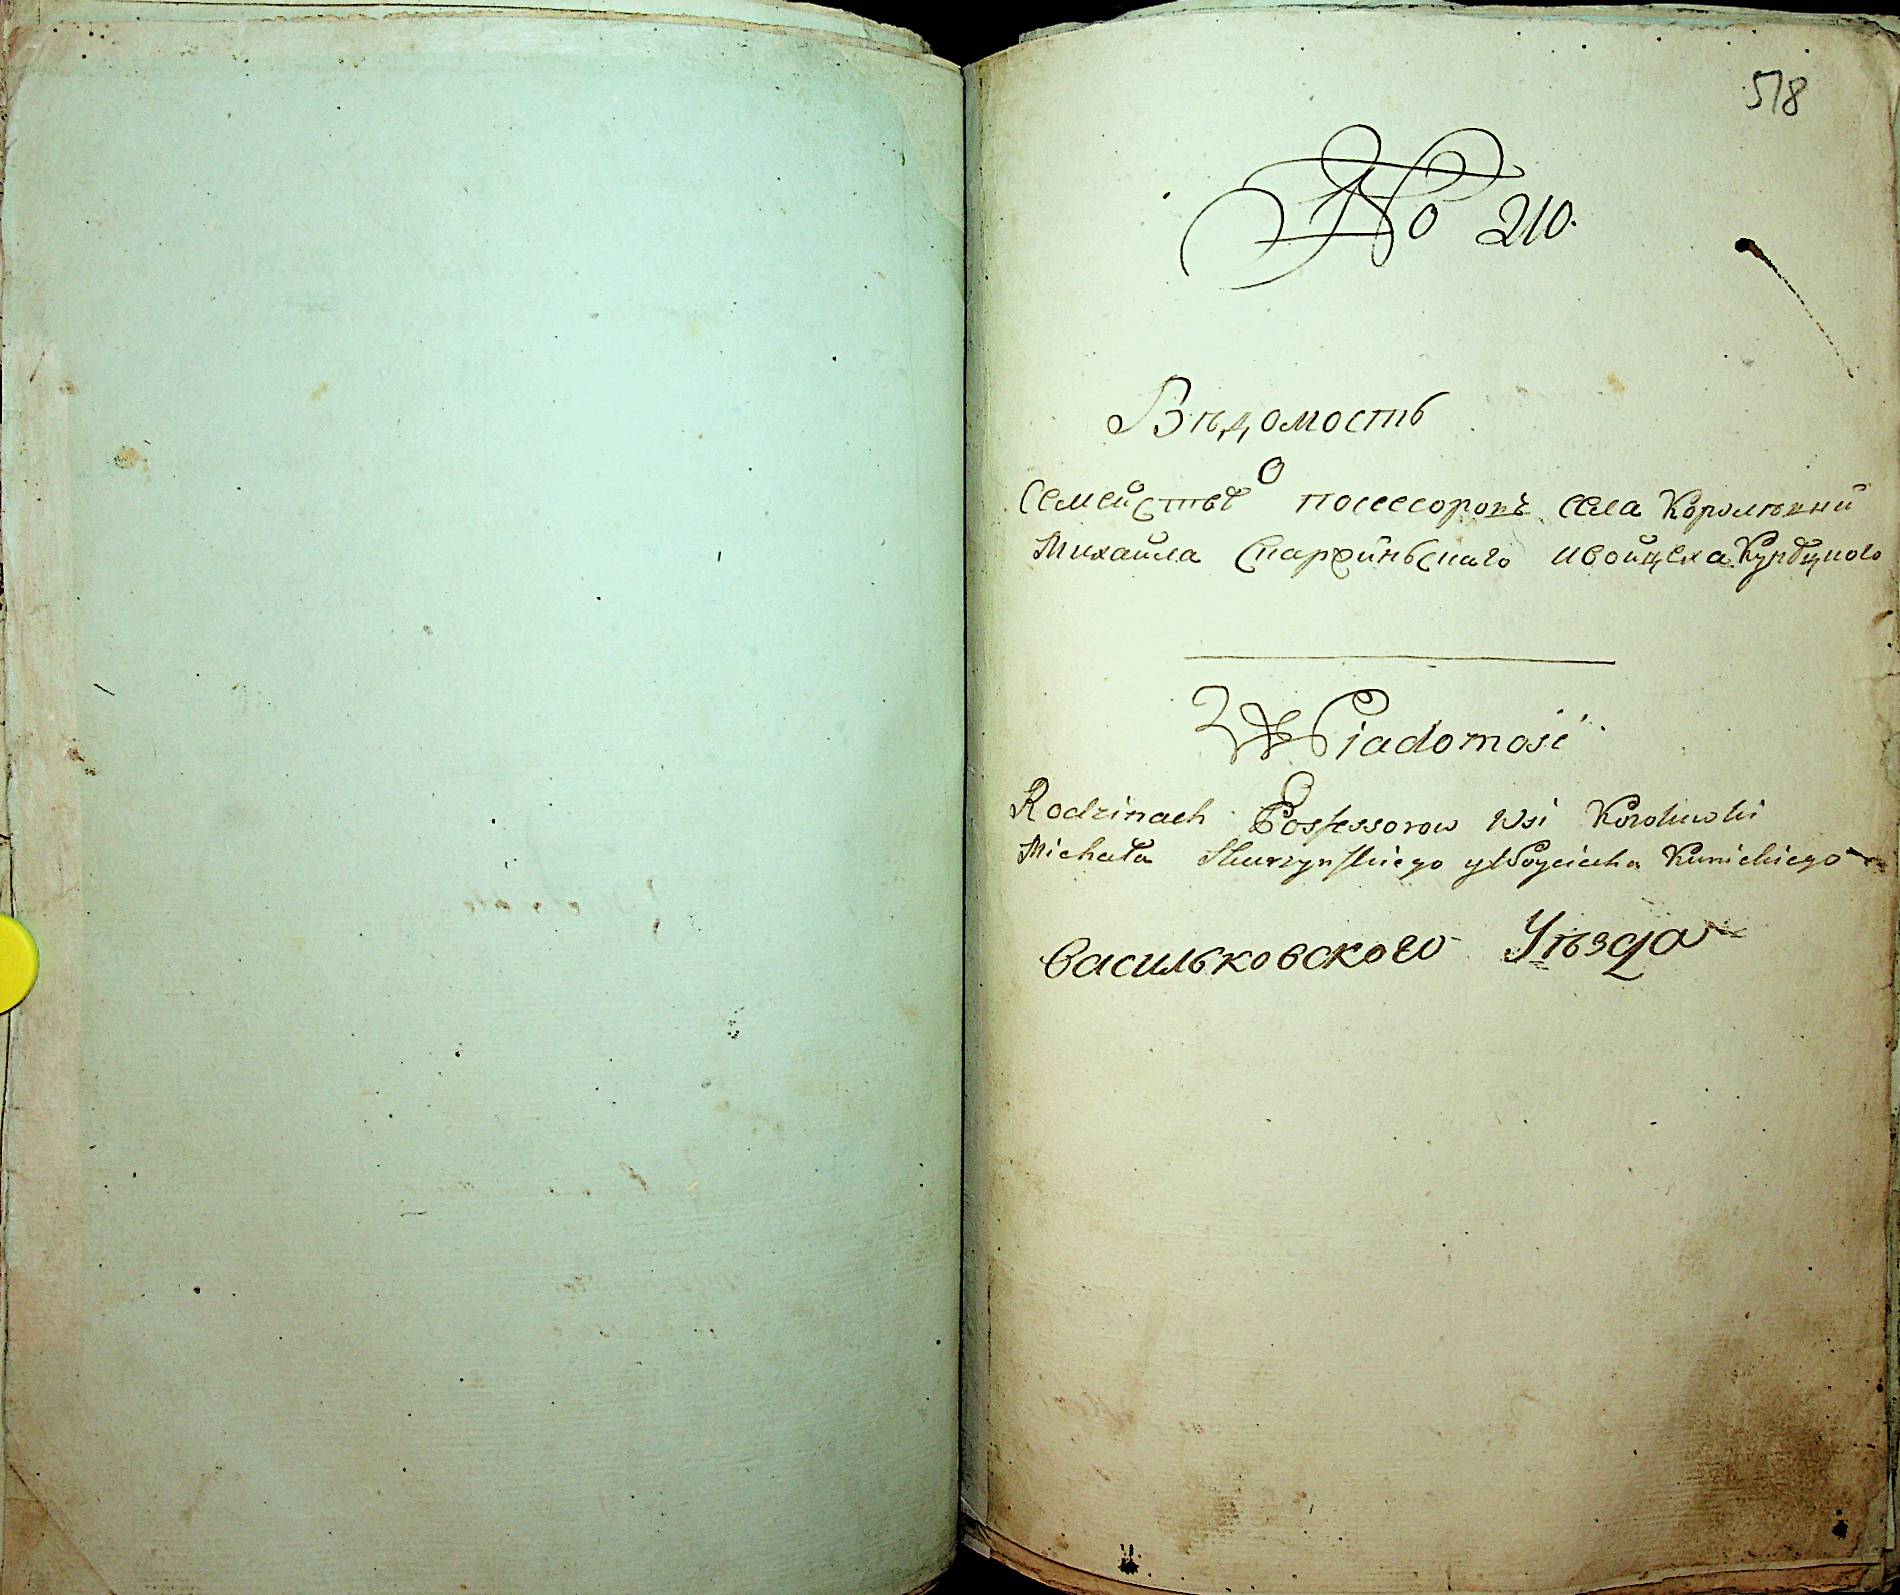 518
No 210.
Вѣдомость
О
Семействѣ посессоровъ села Королѣвки
Михайла Скаржинского и войцеха
Wiadomość
O
Rodzinach Possessorow Wsi Korolowki
Michała Skarzynskiego y Woyciecha Kunickiego
Васильковского Уѣзда